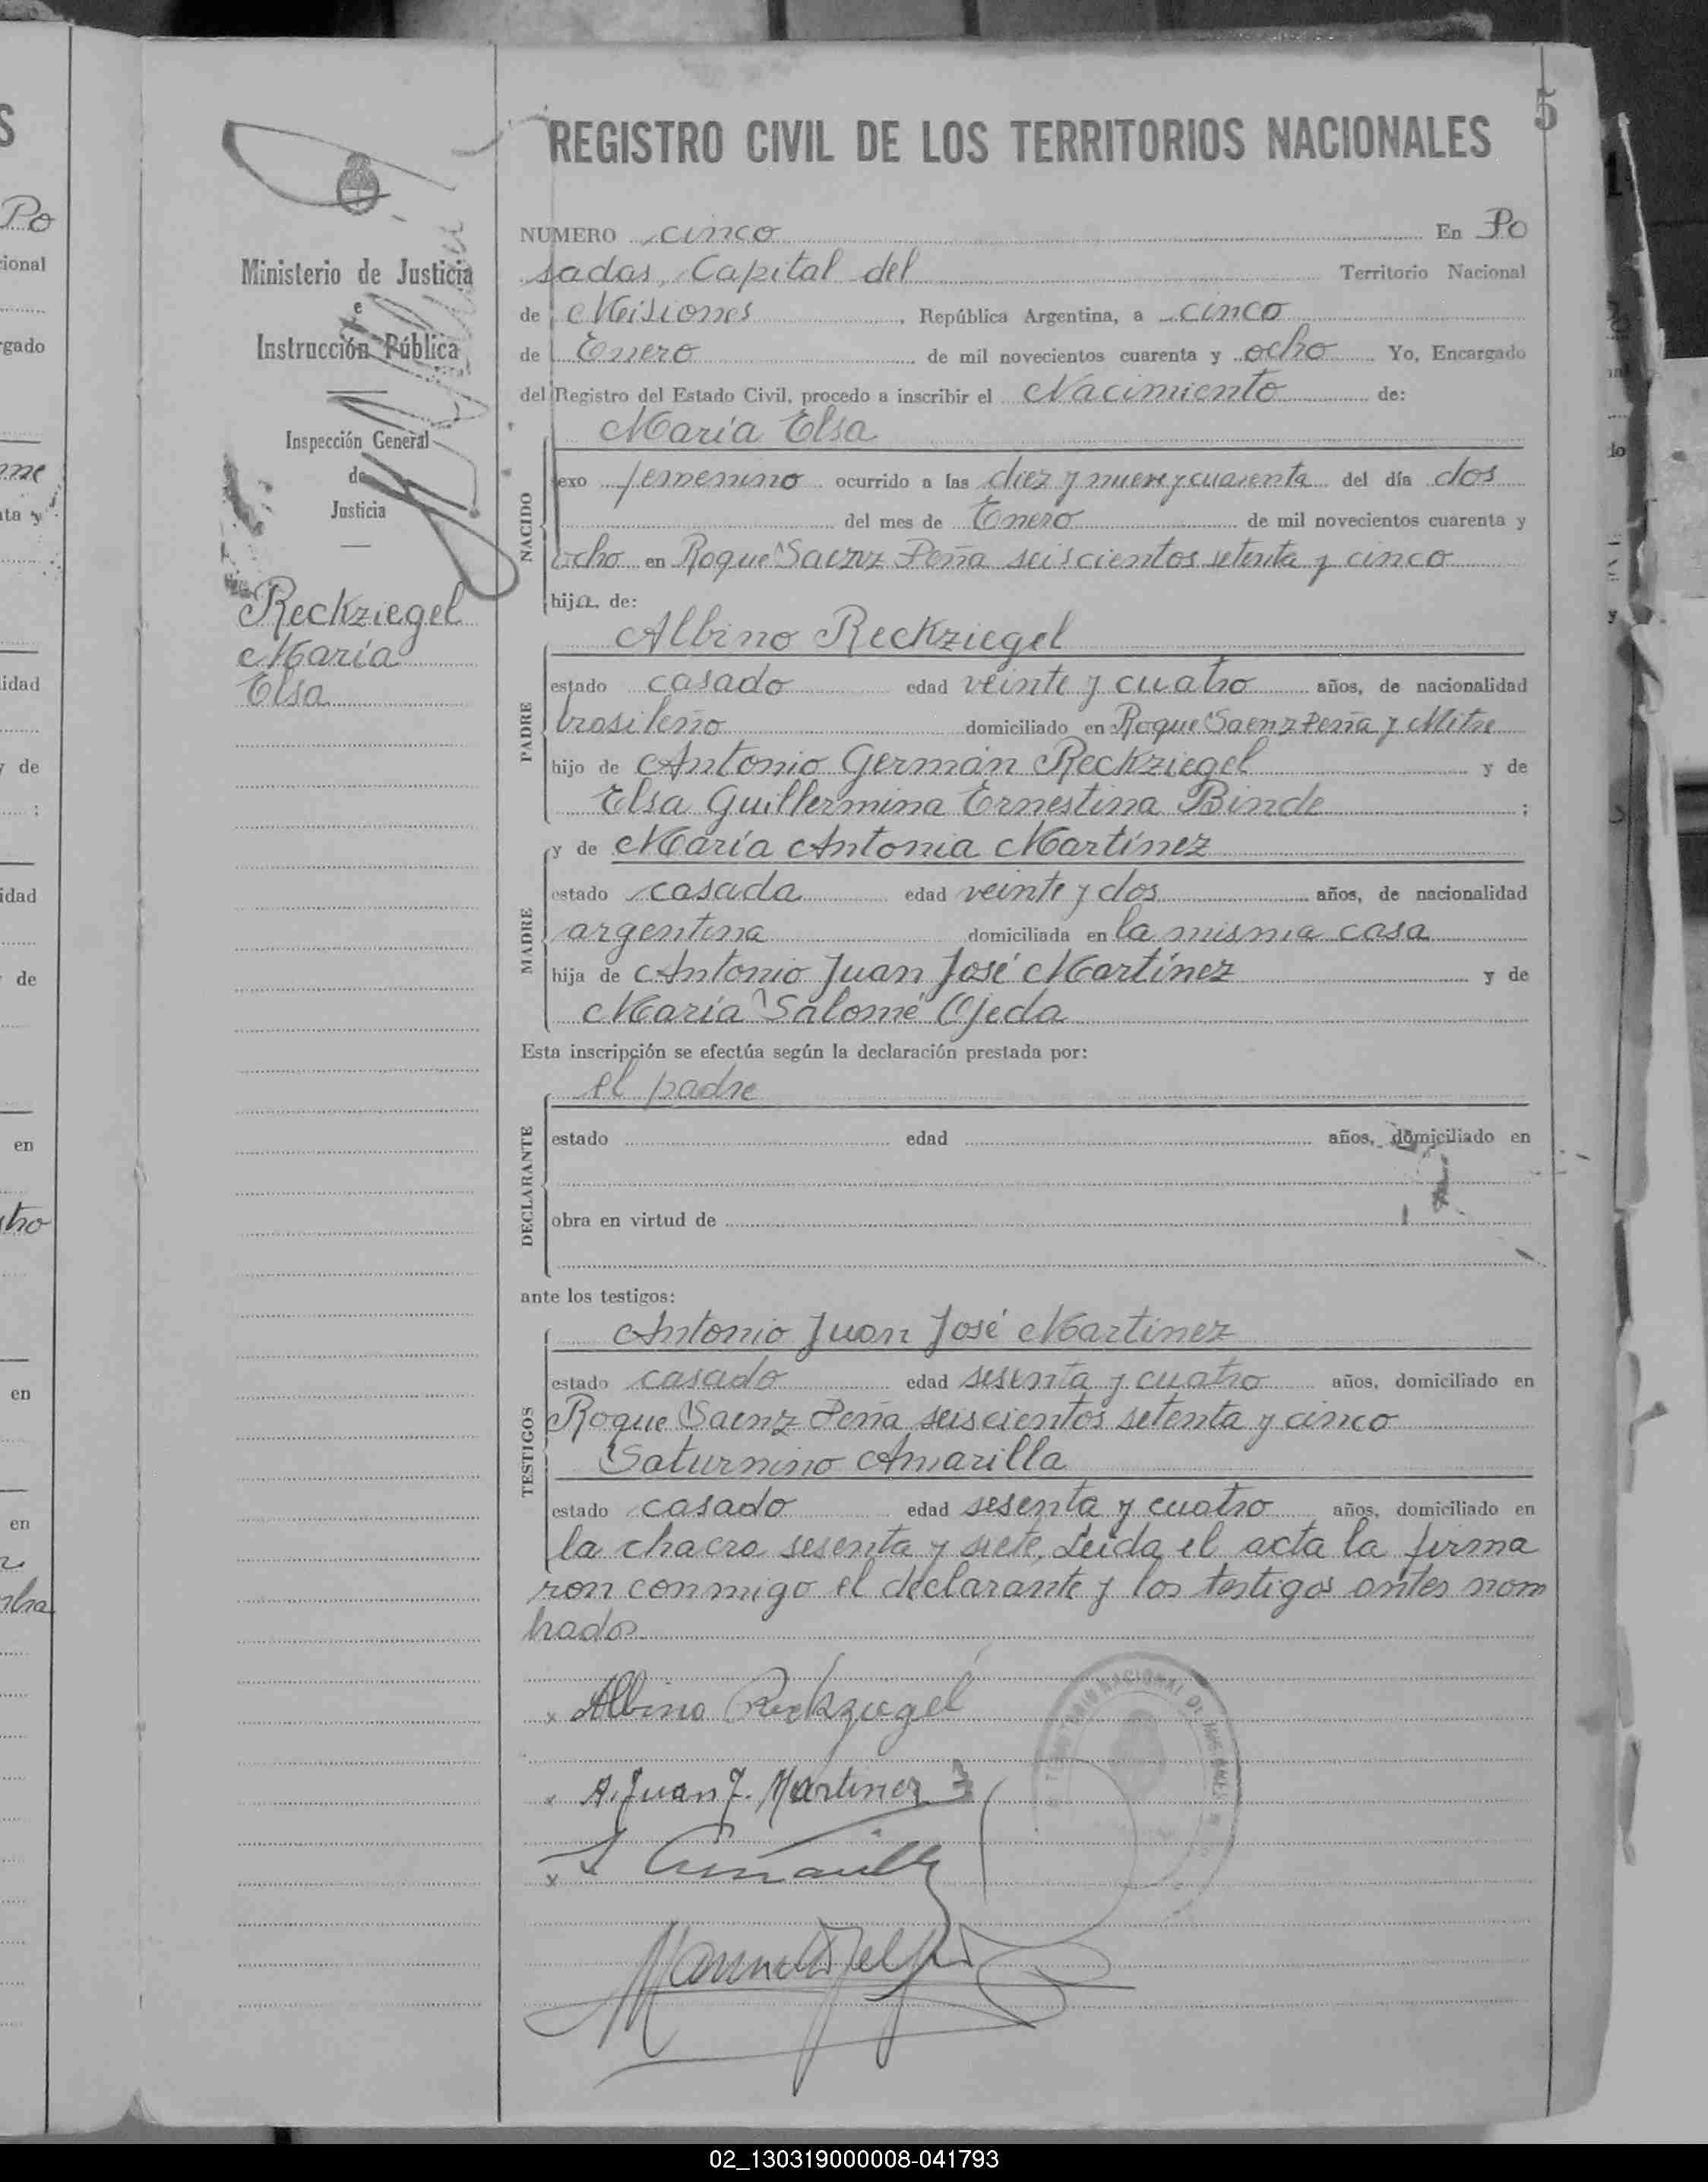 REGISTRO CIVIL DE LOS TERRITORIOS NACIONALES
5
Ministerio de Justicia
e
Instrucción Pública
Inspección General
de
Justicia
Reckziegel
María
Elsa
NUMERO cinco En Po
sadas, Capital del Territorio Nacional
de Misiones, República Argentina, a cinco
de Enero de mil novecientos cuarenta y ocho Yo, Encargado
del Registro del Estado Civil, procedo a inscribir el Nacimiento de:
NACIDO
María Elsa
sexo femenino ocurrido a las diez y nueve y cuarenta del día dos
del mes de Enero de mil novecientos cuarenta y
ocho en Roque Saenz Peña seiscientos setenta y cinco
hija de:
PADRE
Albino Reckziegel
estado casado edad veinte y cuatro años, de nacionalidad
brasileño domiciliado en Roque Saenz Peña y Mitre
hijo de Antonio Germán Reckziegel y de
Elsa Guillermina Ernestina Binde ;
MADRE
y de María Antonia Martínez
estado casada edad veinte y dos años, de nacionalidad
argentina domiciliada en la misma casa
hija de Antonio Juan José Martínez y de
María Salomé Ojeda
Esta inscripción se efectúa según la declaración prestada por:
DECLARANTE
el padre
estado edad años, domiciliado en
obra en virtud de
ante los testigos:
TESTIGOS
Antonio Juan José Martinez
estado casado edad sesenta y cuatro años, domiciliado en
Roque Saenz Peña seiscientos setenta y cinco
Saturnino Amarilla
estado casado edad sesenta y cuatro años, domiciliado en
la chacra sesenta y siete. Leida el acta la firma
ron conmigo el declarante y los testigos antes nom
brados
x Albino Reckziegel
x A. Juan J. Martinez
x S Amarilla
02_130319000008-041793